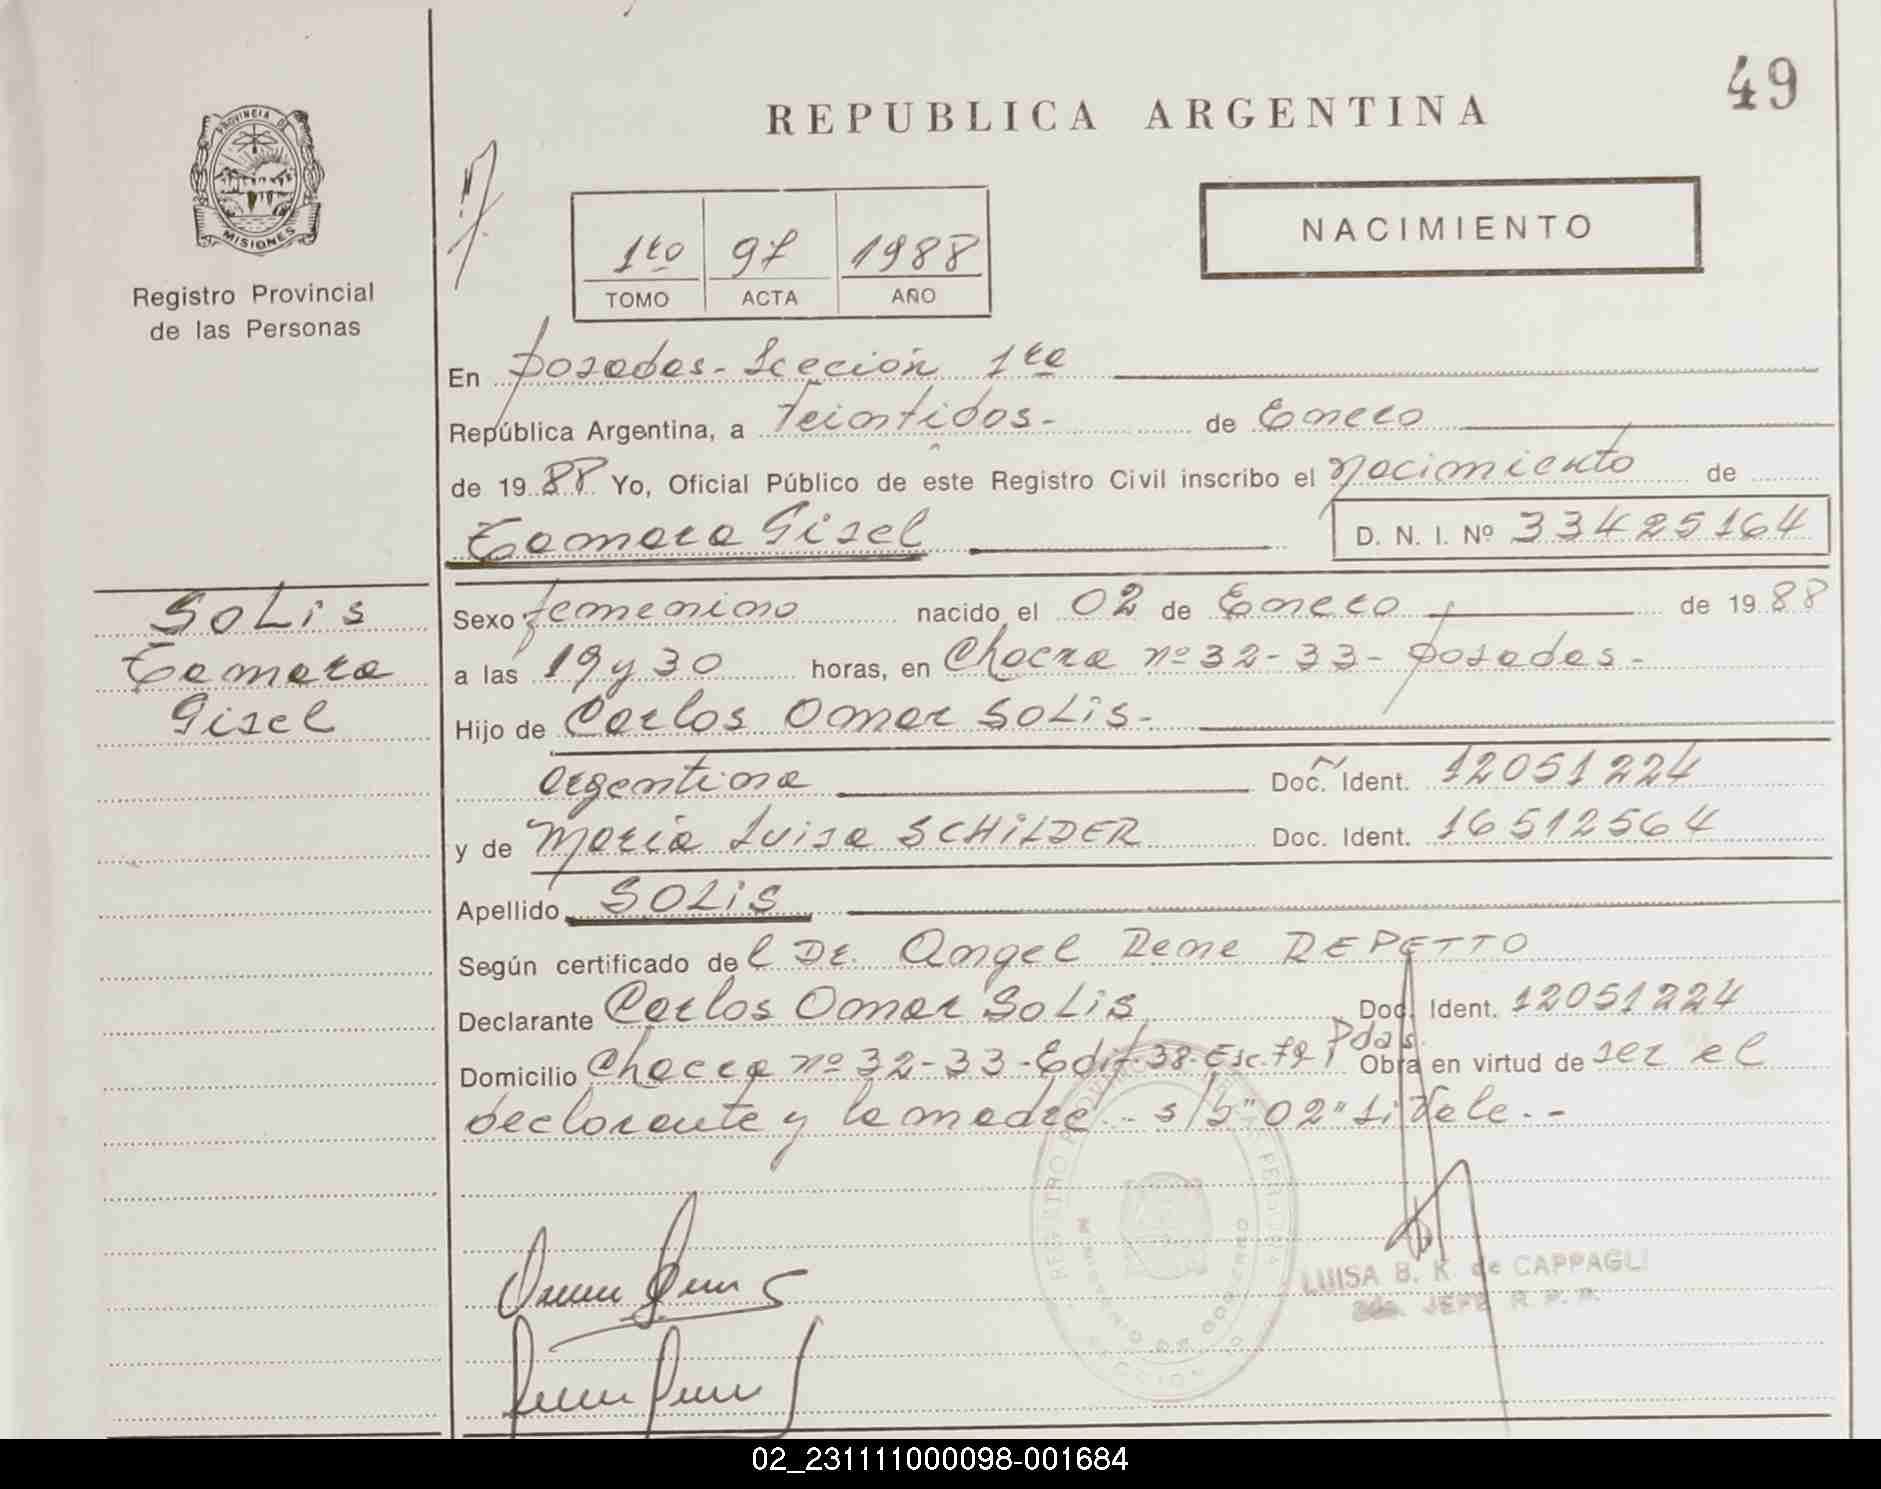 49
REPUBLICA ARGENTINA
PROVINCIA DE
MISIONES
Registro Provincial
de las Personas
NACIMIENTO
1to 97 1988
TOMO ACTA AÑO
En Posadas - Sección 1ra
República Argentina, a Veintidos - de Enero
de 1988 Yo, Oficial Público de este Registro Civil inscribo el nacimiento de
Tamara Gisel D. N. I. Nº 33425164
SOLIS
Tamara
Gisel
Sexo femenino nacido el 02 de Enero de 1988
a las 19 y 30 horas, en Chacra nº 32-33- Posadas -
Hijo de Carlos Omar SOLIS -
argentina Doc. Ident. 12051224
y de Maria Luisa SCHILDER Doc. Ident. 16512564
Apellido SOLIS
Según certificado del Dr. Angel Rene REPETTO
Declarante Carlos Omar SOLIS Doc. Ident. 12051224
Domicilio Chacra nº 32-33-Edif. 38-Esc. 79 Pdas. Obra en virtud de ser el
declarante y la madre - s/b "02" si Vale. -
LUISA B. K. de CAPPAGLI
JEFE R. P. P.
02_231111000098-001684